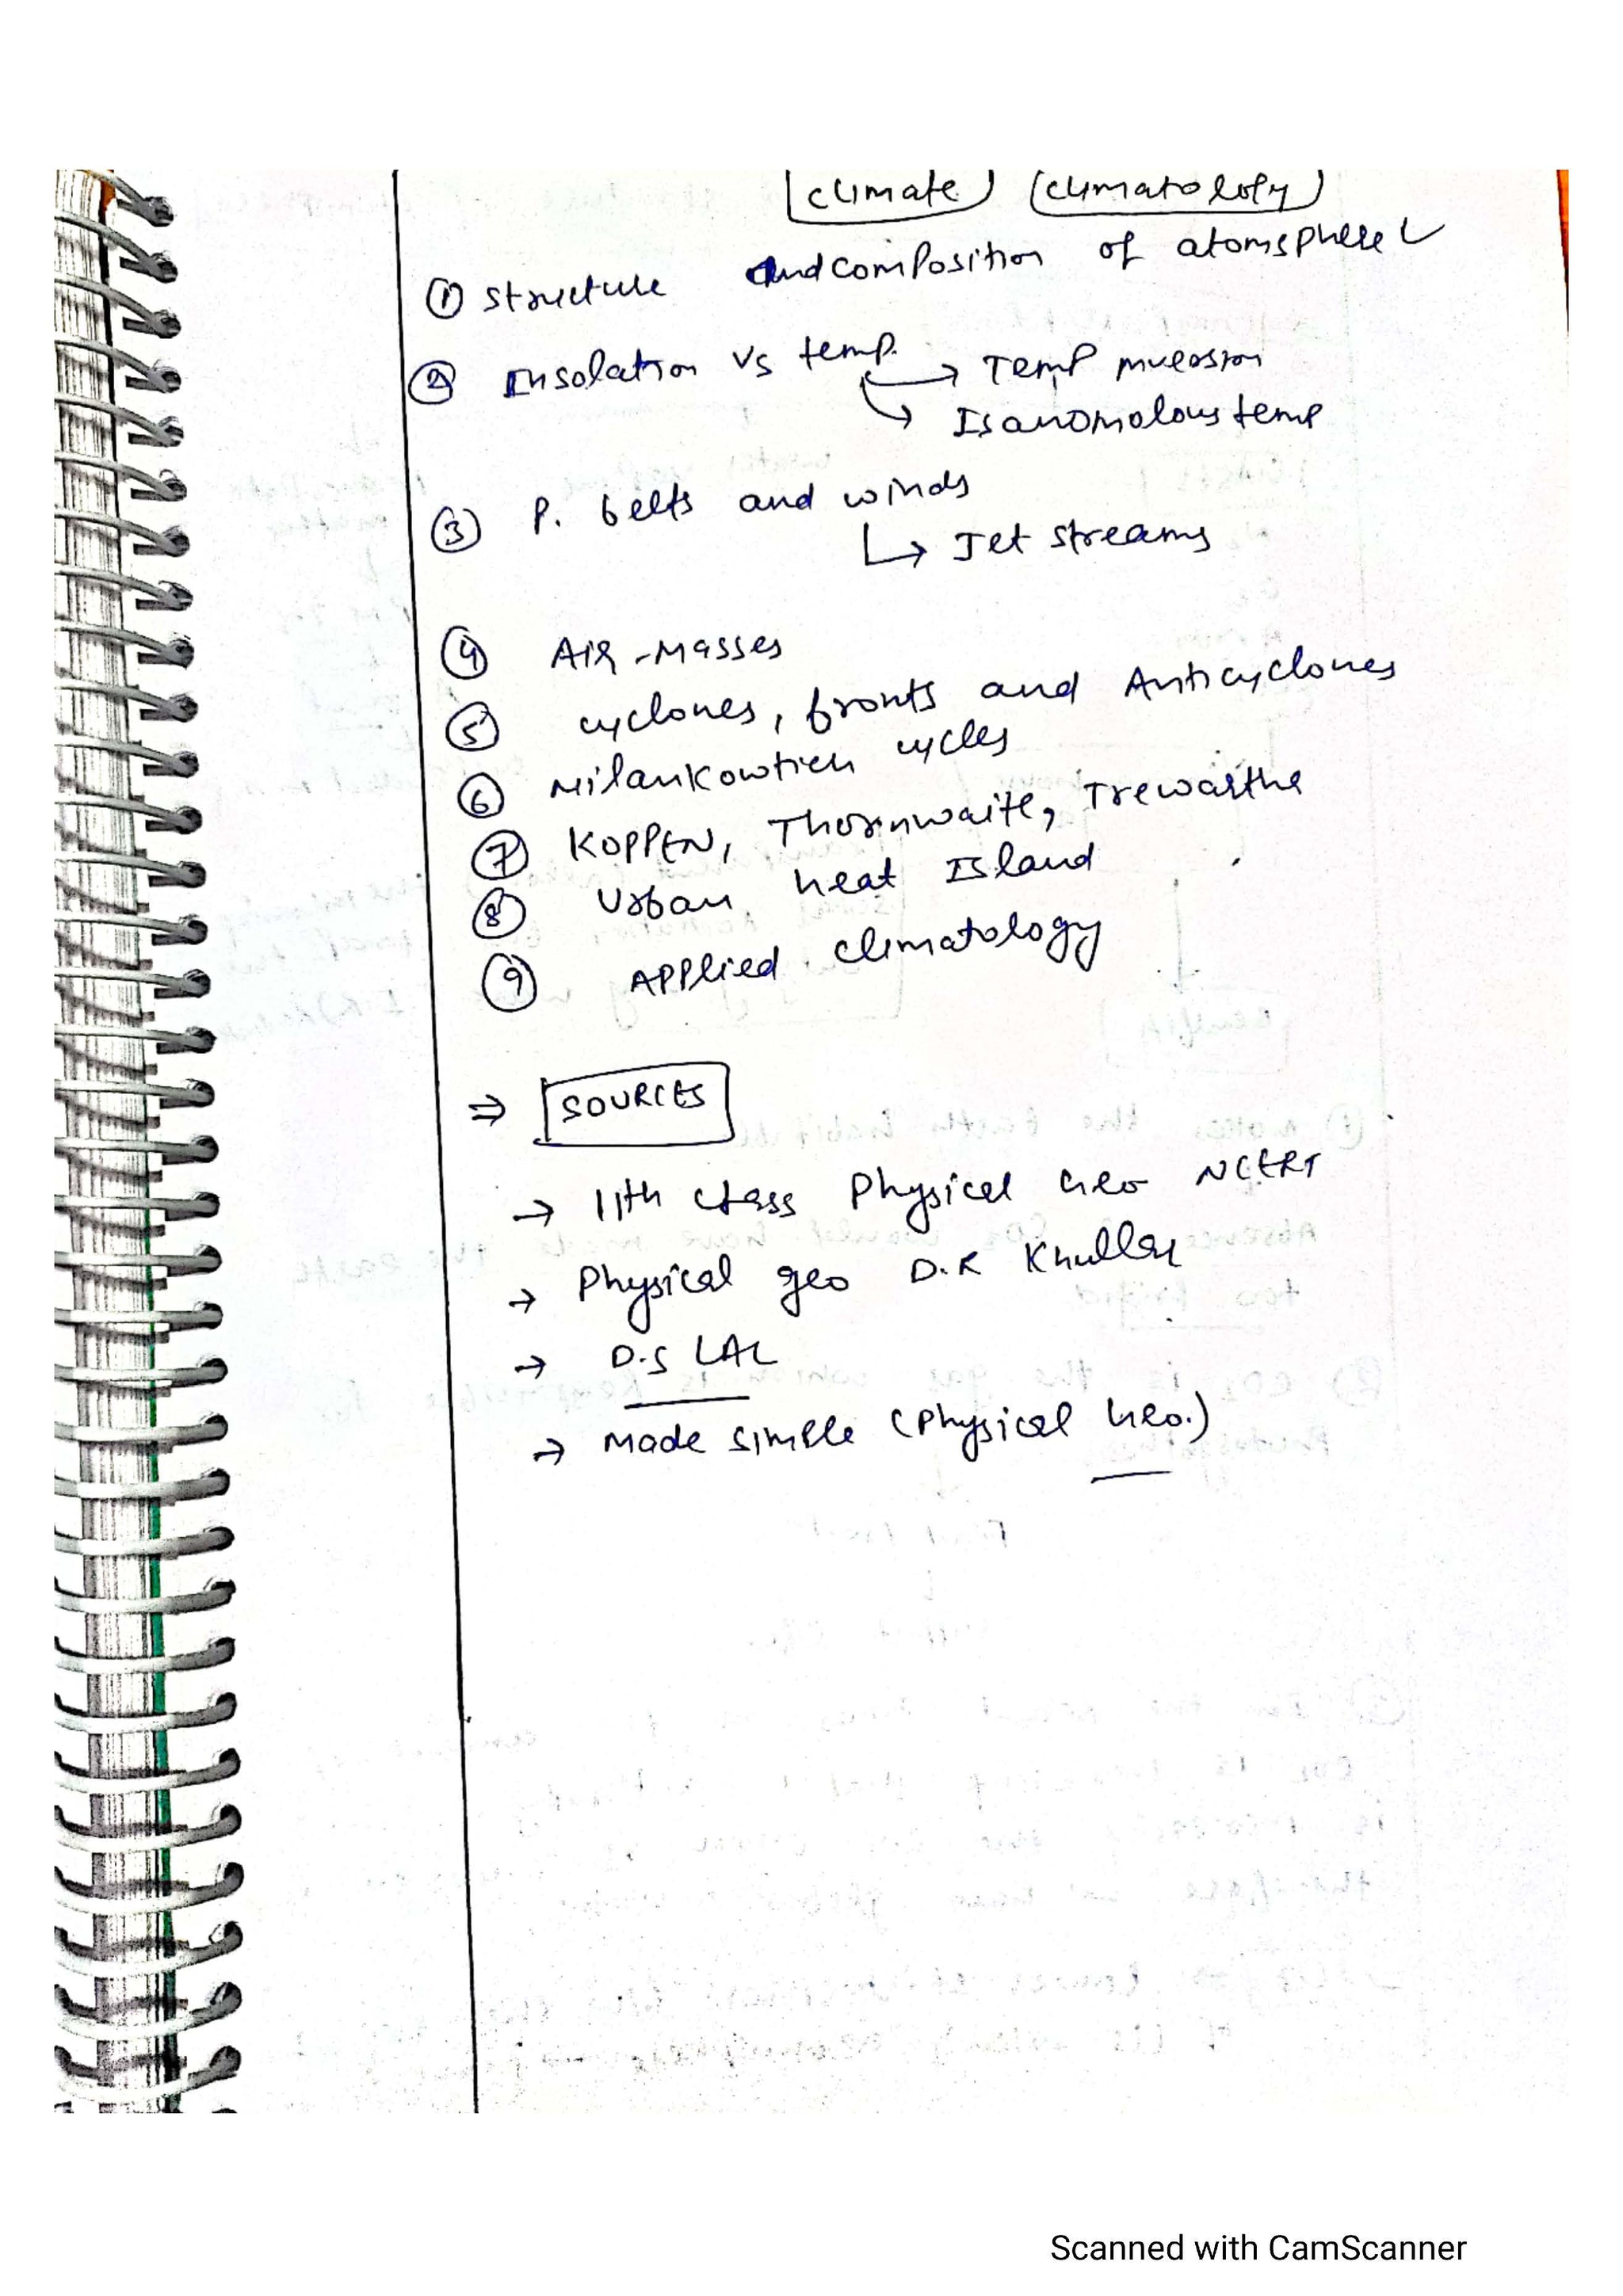 climate climatology
① structure and composition of atomsphere
② Insolation vs temp. → Temp inversion
→ Isanomolous temp
③ P. belts and winds
↳ Jet streams
④ AIR-Masses
⑤ cyclones, fronts and Anticyclones
⑥ Milankowtich cycles
⑦ KOPPEN, Thornwaite, Trewartha
⑧ Urban heat Island
⑨ APPlied climatology
⇒ SOURCES
→ 11th class Physical Geo NCERT
→ Physical geo D.R Khullar
→ D.S LAL
→ Made simple (Physical Geo.)
Scanned with CamScanner